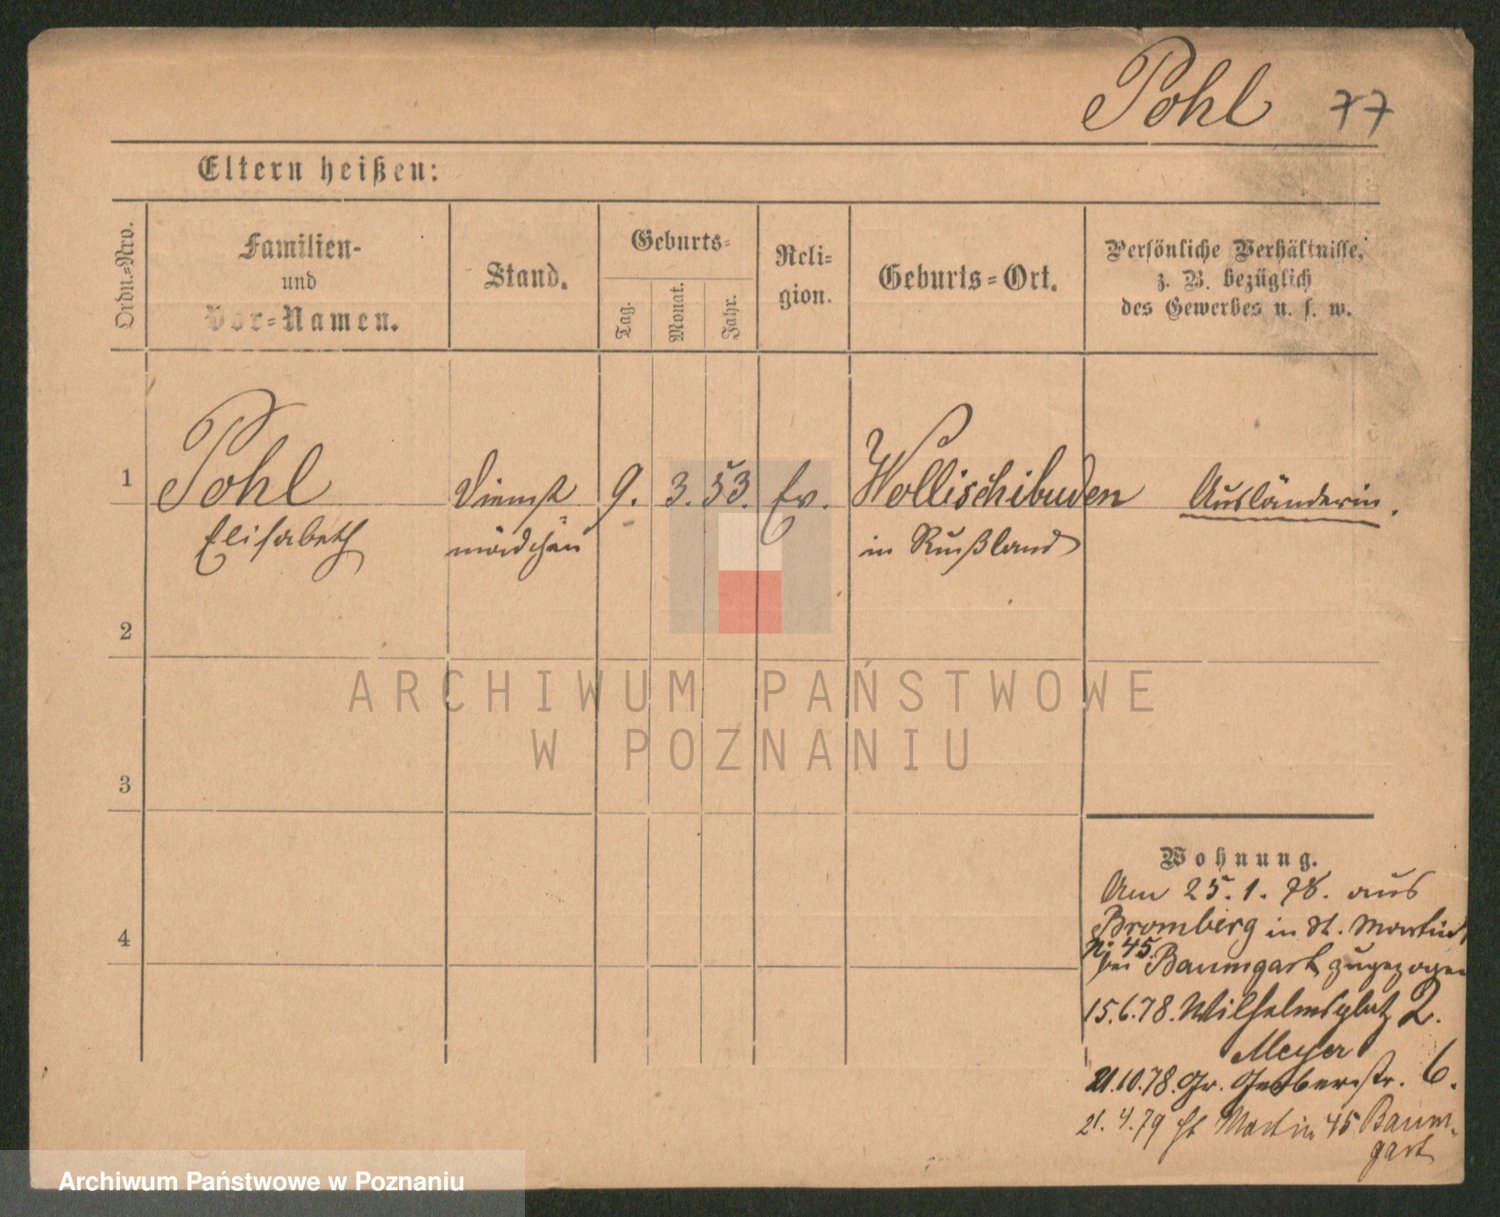 Pohl 77
Eltern heißen:
Ordn.=Nro.
Familien-
und
Vor=Namen.
Stand.
Geburts=
Tag.
Monat.
Jahr.
Reli=
gion.
Geburts=Ort.
Persönliche Verhältnisse,
z. B. bezüglich
des Gewerbes u. s. w.
1 Pohl Dienst 9. 3. 53. Ev. Wollischibuden Ausländerin.
Elisabeth mädchen in Rußland
2
3
4
Wohnung.
Am 25.1.78. aus
Bromberg in St. Martin
N: 45.
bei Baumgart zugezogen
15.6.78. Wilhelmsplatz 2.
Meyer
21.10.78. Gr. Gerberstr. 6.
21.4.79 St Martin 45 Baum-
gart
ARCHIWUM PAŃSTWOWE
W POZNANIU
Archiwum Państwowe w Poznaniu